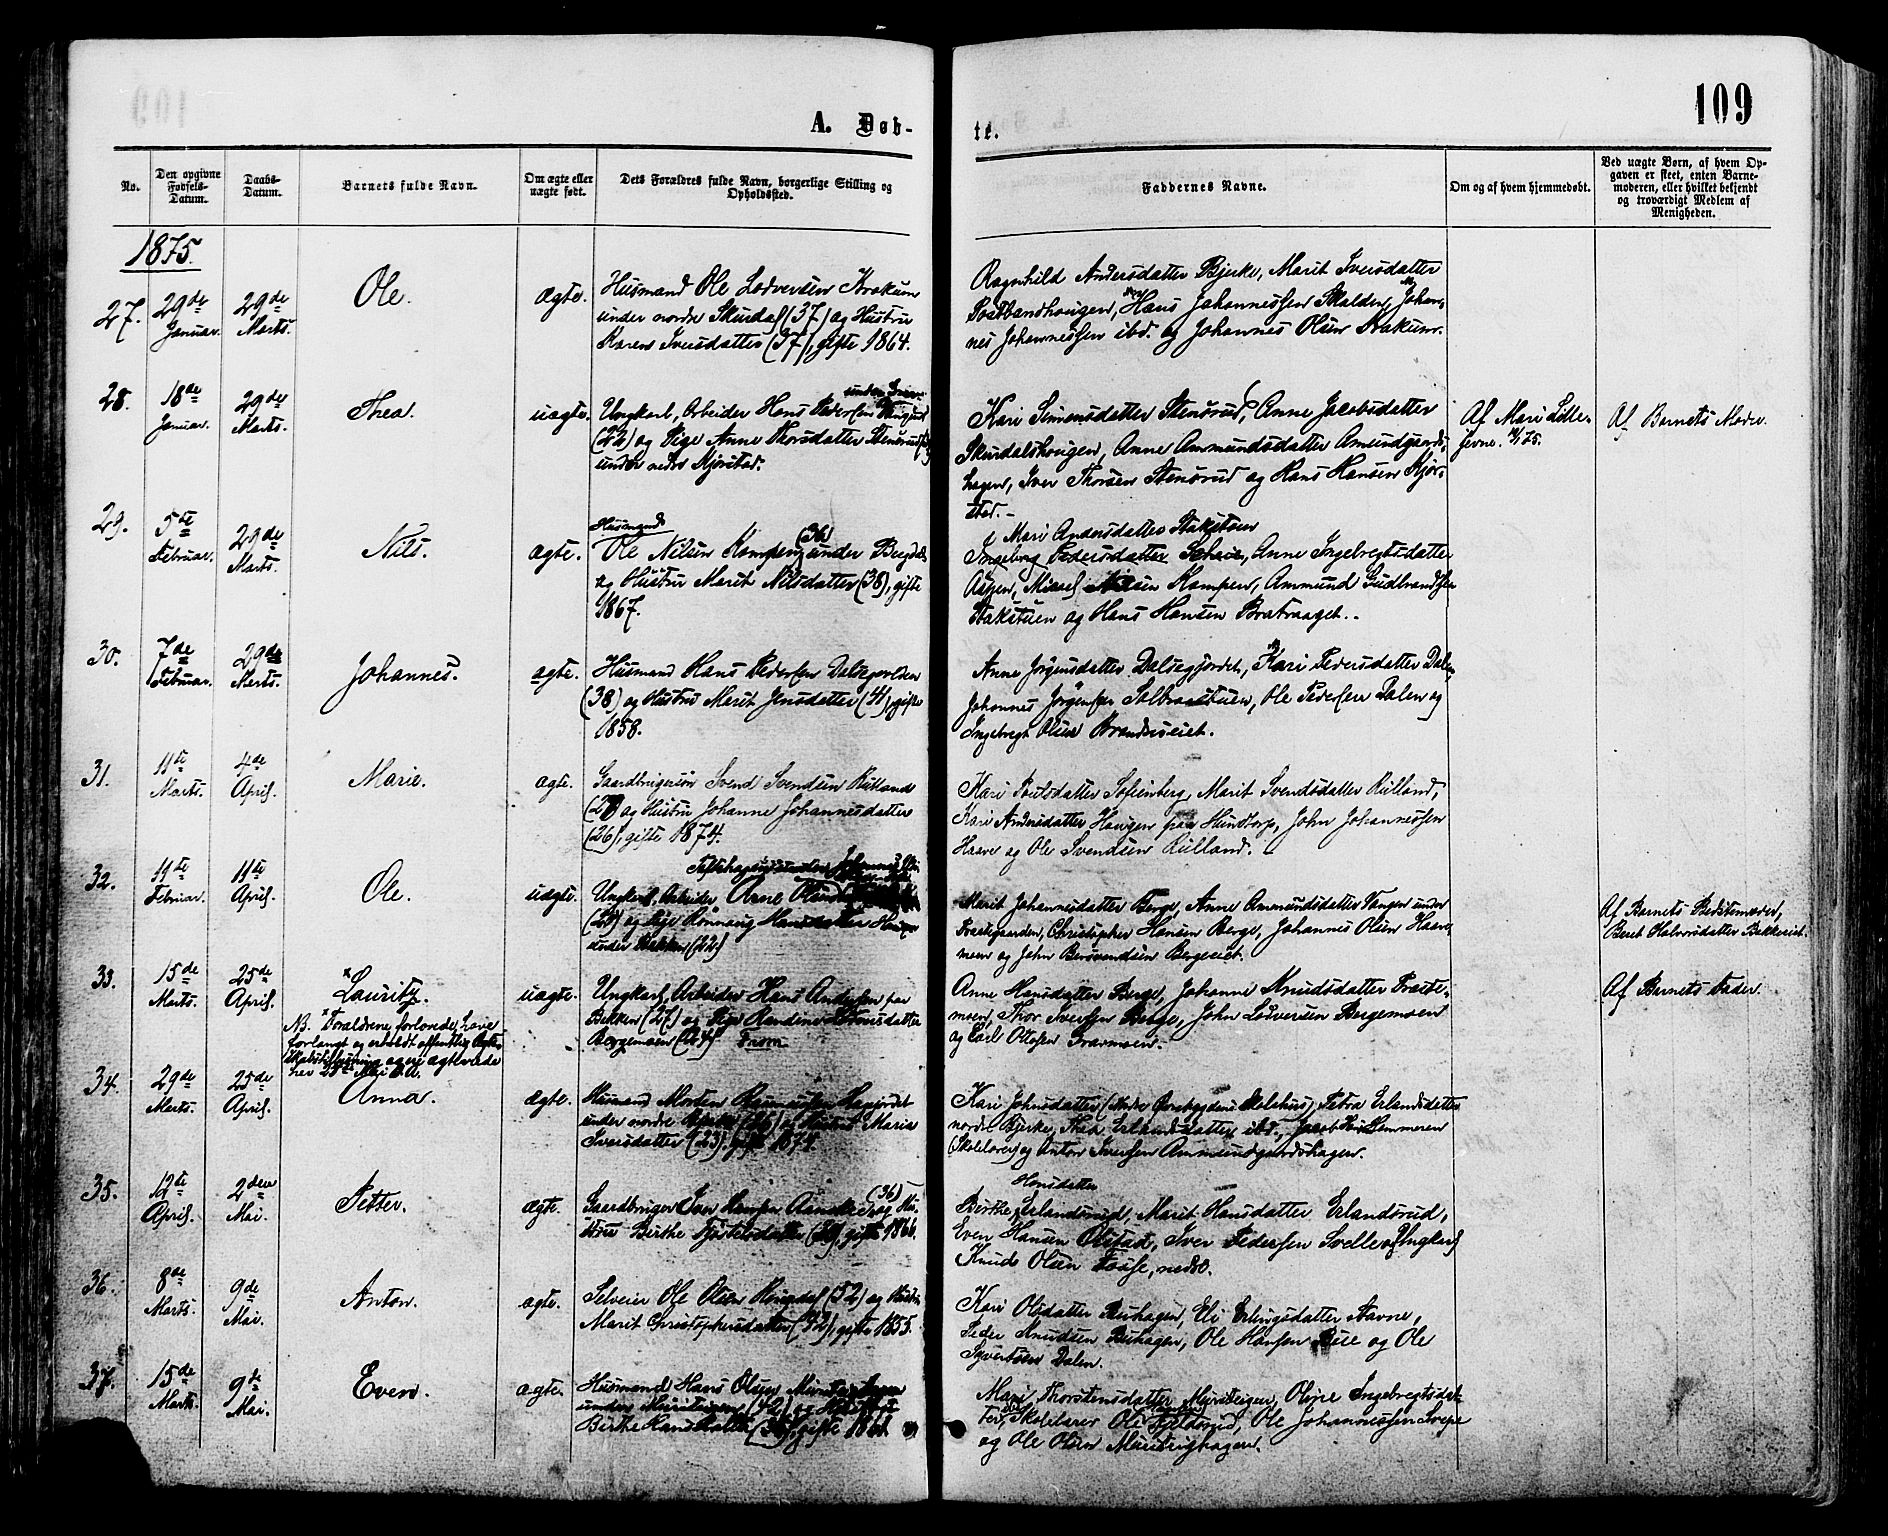 109
A. Døb-
te.
No.
Den opgivne
Fødsels-
Datum.
Daabs-
Datum.
Barnets fulde Navn.
Om ægte eller
uægte født.
Dets Forældres fulde Navn, borgerlige Stilling og
Opholdssted.
Faddernes Navne.
Om og af hvem hjemmedøbt.
Ved uægte Børn, af hvem Op-
gaven er skeet, enten Barne-
moderen, eller hvilket bekjendt
og troværdigt Medlem af
Menigheden.
1875.
27.
29de
Januar.
29de
Marts.
Ole.
ægte.
Husmand Ole Lodversen
under nordre Skurdal (37) og Hustru
Karen Iversdatter (37), gifte 1864.
Ragnhild Andersdatter Bjerke, Marit Iversdatter
Hans Johannessen Skalden, Johan-
nes Johannessen ibd. og Johannes Olsen
28.
18de
Januar.
29de
Marts.
Thea.
uægte.
Ungkarl, Arbeider Hans Pedersen
(22) og Pige Anne Thorsdatter Stenerud
under nedre Kjørstad.
Kari Simensdatter Stenerud, Anne Jacobsdatter
Skurdalshougen, Anne Ammundsdatter Amundgaards-
hagen, Iver Thorsen Stenerud og Hans Hansen Kjør-
stad.-
Af Mari Lille-
jevne.
Af Barnets Moder.
29.
5te
Februar.
29de
Marts.
Nils.
ægte.
Husmand
Ole Nilsen Kampen (36) under Bergdal
og Hustru Marit Nilsdatter (38), gifte
1867.
Mari Andersdatter Stakstuen
Ingeborg Pedersdatter Anne Ingebregtsdatter
Nilsen Kampen, Ammund Gudbrandsen
Stakstuen og Hans Hansen Bratraaget.
30.
7de
Februar.
29de
Marts.
Johannes.
ægte.
Husmand Hans Pedersen Dalsegvolden
(38) og Hustru Marit Jensdatter (41), gifte
1858.
Anne Jörgensdatter Dalsegjordet, Kari Pedersdatter Dalen,
Johannes Jörgensen Solbraastuen, Ole Pedersen Dalen og
Ingebregt Olsen
31.
11te
Marts.
4de
April.
Marie.
ægte.
Gaardbrugersön Svend Svendsen Rulland
og Hustru Johanne Johannesdatter
(26), gifte 1874.
Kari Poulsdatter Sofienberg, Marit Svendsdatter Rulland,
Kari Andersdatter Haugen paa Hundtorp, John Johannessen
Haave og Ole Svendsen Rulland.
32.
19te
Februar.
11te
April.
Ole.
uægte.
Ungkarl, Arbeider Arne
og Pige Rönnaug Hansdatter
under Bekken (22)
Marit Johannesdatter Berge, Anne Ammundsdatter Vangen under
Præstegaarden, Christopher Hansen Berge, Johannes Olsen Haave-
moen og John Bersvendsen Bergeseiet.
Af Barnets Bedstemoder,
Beret Halvorsdatter Bekkeeiet.
33.
15de
Marts.
25de
April.
Lauritz.
NB. Forældrene forlovede, have
forlangt og erholdt offentlig Ægte-
skabstillysning og ere ægteviede
her 25de Mai d. A.
uægte.
Ungkarl, Arbeider Hans Andersen paa
Bekken (27) og Pige Randine
Bergemoen (24)
Anne Hansdatter Berge, Johanne Knudsdatter
moen, Thor Iversen Berge, John Lodversen Bergemoen
og Carl Ottosen
Af Barnets Fader.
34.
29de
Marts.
25de
April.
Anna.
ægte.
Husmand Morten
under nordre Bjerke og Hustru Maria
Iversdatter (23), gifte 1874.
Kari Johnsdatter Petra Erlandsdatter
nordre Bjerke, Thea Erlandsdatter ibd., Jacob
(Skolelærer) og Anton Iversen Ammundgaardshagen.
35.
12te
April.
2den
Mai.
Petter.
ægte.
Gaardbruger Iver Hansen (36) og Hu-
stru Birthe gifte 1866.
Hansdatter
Birthe Erlandsrud, Marit Hansdatter Erlandsrud,
Even Hansen Olstad, Iver Pedersen Svelle og Ungkarl
Knud Olsen nedre.
36.
8de
Marts.
9de
Mai.
Anton.
ægte.
Selveier Ole Olsen Ringdal (52) og Hustru
Marit Christophersdatter (42), gifte 1855.
Kari Olsdatter Buhagen, Eli Erlingsdatter Stavne,
Peder Knudsen Buhagen, Ole Hansen Bue og Ole
Syvertsen Dalen.
37.
15de
Marts.
9de
Mai.
Even.
ægte.
Husmand Hans Olsen
under og Hustru
Birthe Hansdatter gifte 1861.
Mari Thorstensdatter Ingebregtsdat-
ter, Skolelærer Ole Fjeldsrud, Ole Johannessen
og Ole Olsen